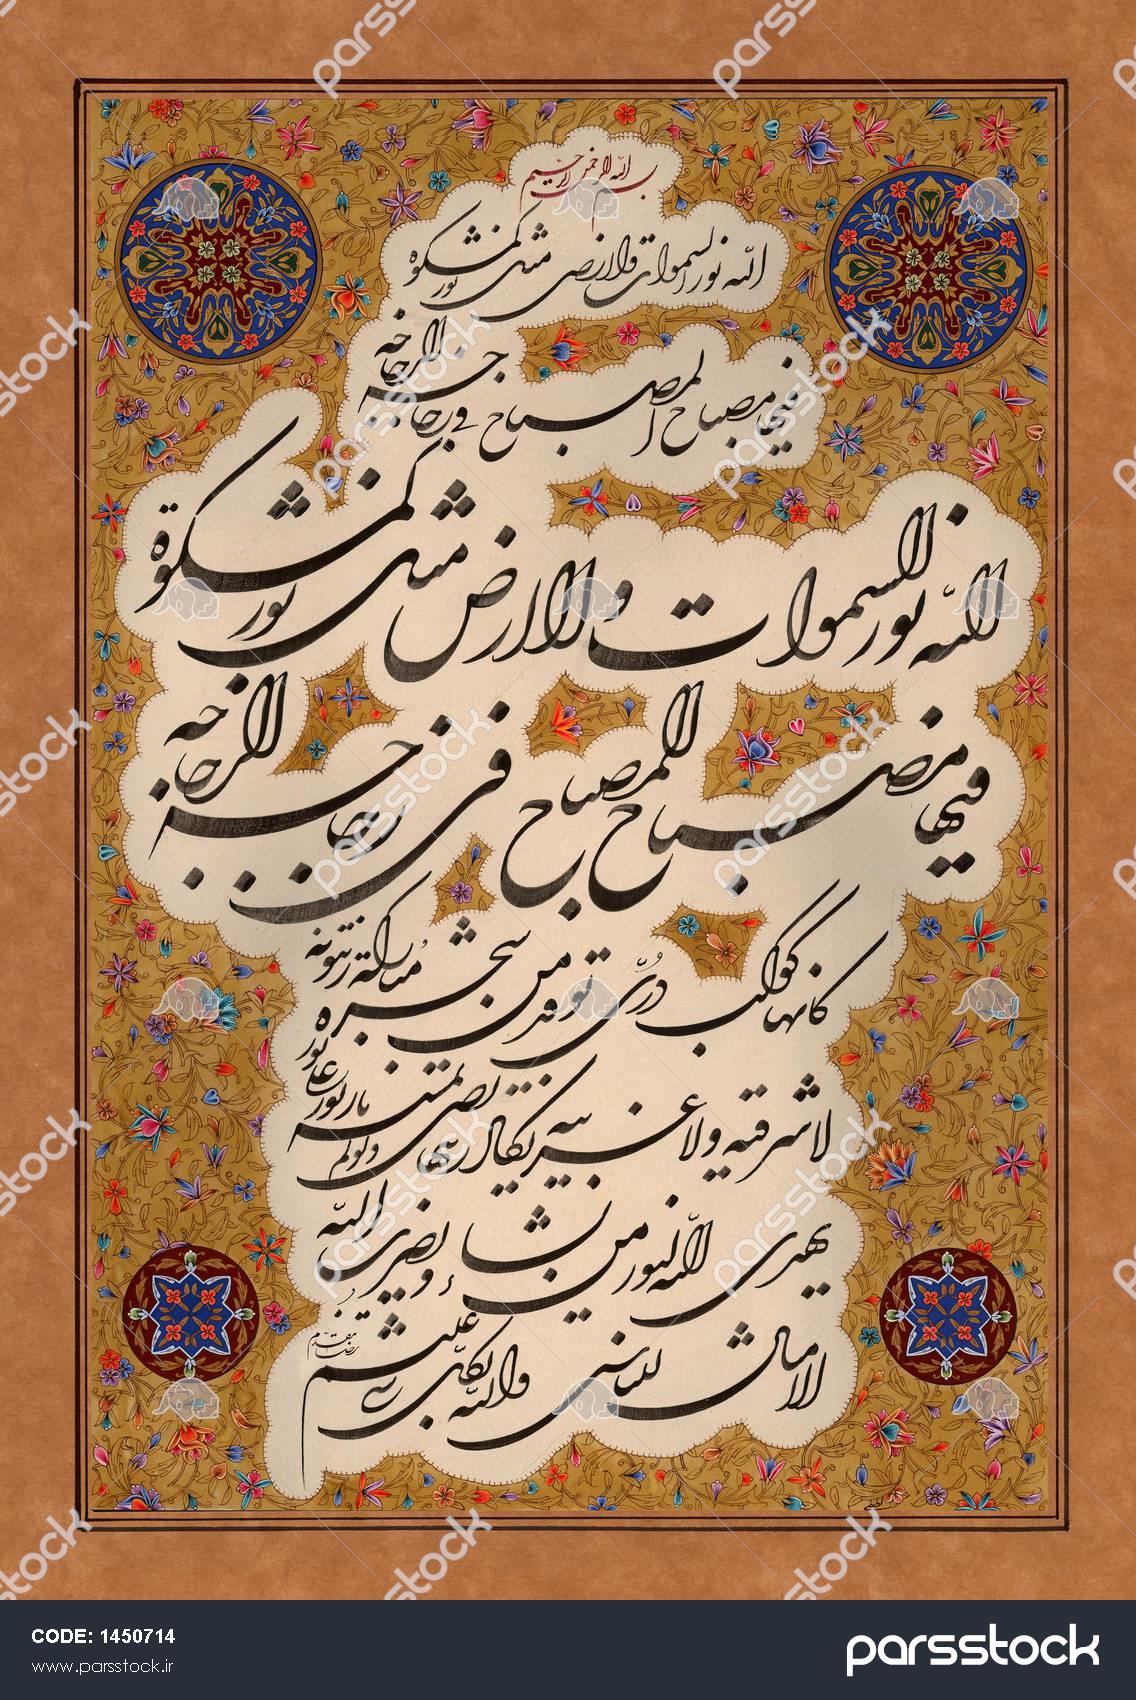 بسم الله الرحمن الرحیم
الله نور السموات والارض مثل نوره کمشکوة
فیها مصباح المصباح فی زجاجة الزجاجة
الله نور السموات والارض مثل نوره کمشکوة
فیها مصباح المصباح فی زجاجة الزجاجة
کانها کوکب دُرّی توقد من شجره مُبارکة زیتونه
لا شرقیه ولا غربیه یکاد زیتها یضی ولو لم تمسسه نار نور علی نور
یهدی الله لنوره من یشاء و یضرب الله
الامثال للناس والله بکل شیء علیم
CODE: 1450714
www.parsstock.ir
parsstock